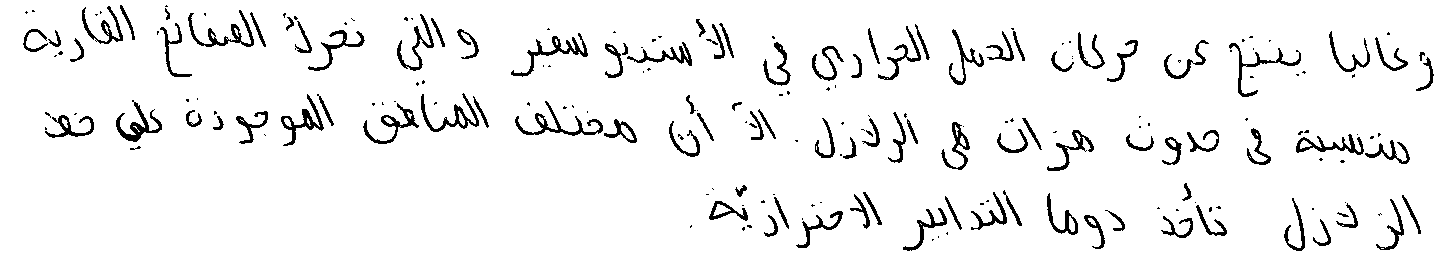 وغالبا ينتج عن حركات الحمل الحراري في الأستينوسفير والتي تحرك الصفائح القارية
متسببة في حدوث هزات هي الزلازل. الآ أن مختلف المناطق الموجودة على خط
الزلازل تأخذ دوما التدابير الاحترازيّة.